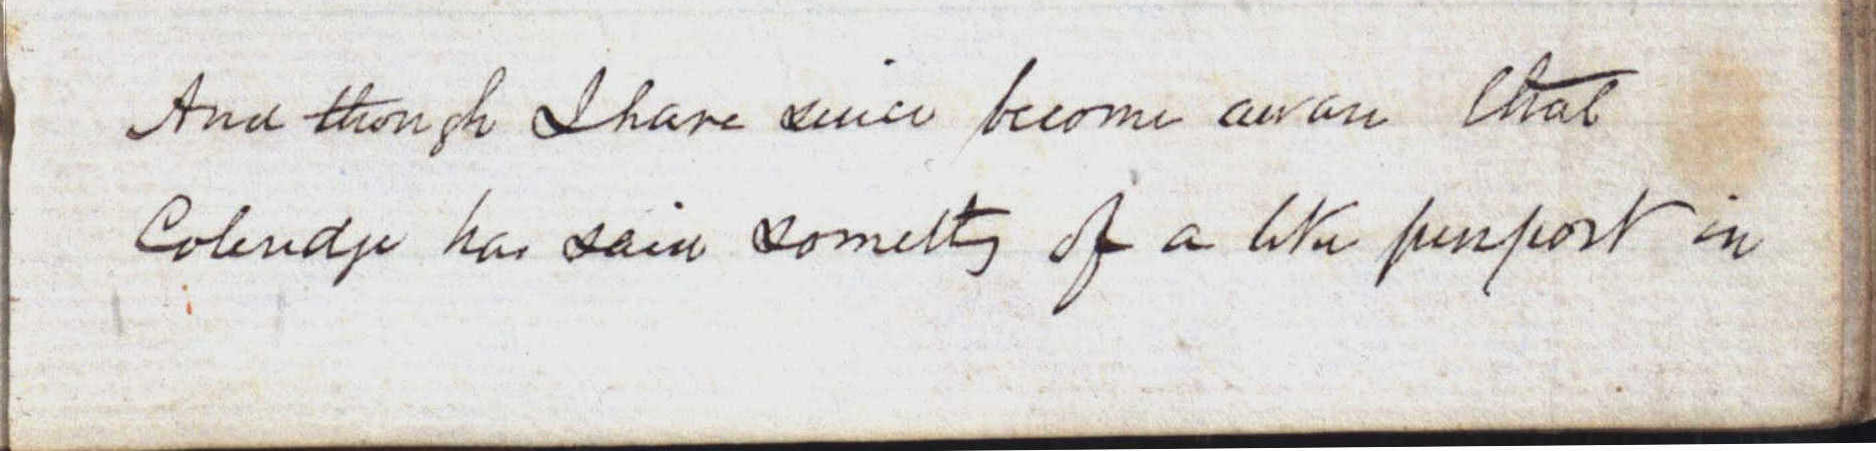 And though I have since become aware that
Coleridge has said something of a like purport in